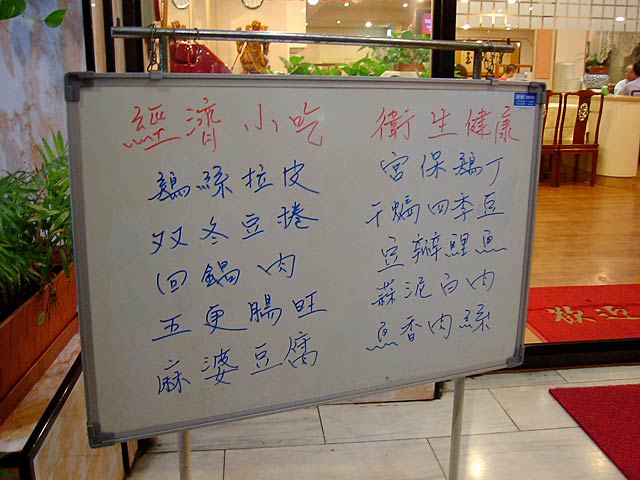 經濟小吃 衛生健康
鷄絲拉皮
双冬豆捲
回鍋肉
五更腸旺
麻婆豆腐
宮保鷄丁
干煸四季豆
豆瓣鯉魚
蒜泥白肉
魚香肉絲
歡迎